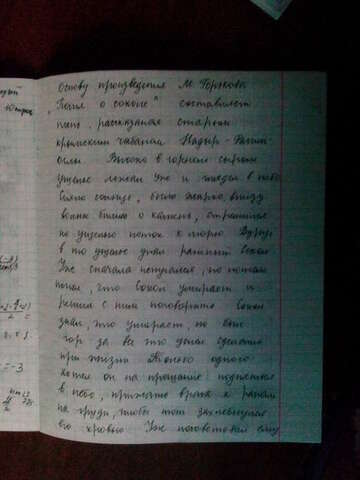 Основу произведения М. Горького
"Песня о соколе" составляет
песнь, рассказаная старым
крымским чабаном Надыр-Рагим
Оглы Высоко в горном сыром
ущелье лежал Уж и глядел в небо
Сияло солнце, было жарко, внизу
волны бились о камень, стремился
по ущелью поток к морю Вдруг
в то ущелье упал раненый Сокол
Уж сначала испугался, но потом
понял, что Сокол умирает и
решил с ним поговорить Сокол
знал, что умирает, но был
горд за все что успел сделать
при жизни Только одного
хотел он на прощание: подняться
в небо, прижать врага к ранам
на груди, чтобы тот захлебнулся
его кровью Уж посоветовал ему